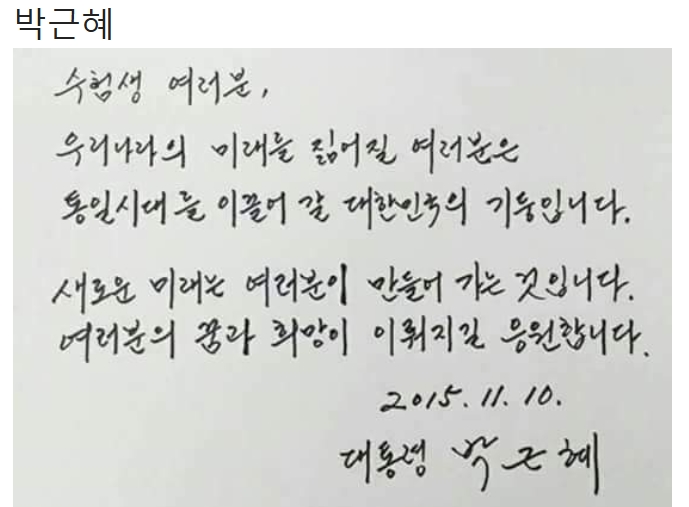 박근혜
수험생 여러분,
우리나라의 미래를 짊어질 여러분은
통일시대를 이끌어 갈 대한민국의 기둥입니다.
새로운 미래는 여러분이 만들어 가는 것입니다.
여러분의 꿈과 희망이 이뤄지길 응원합니다.
2015. 11. 10.
대통령 박근혜